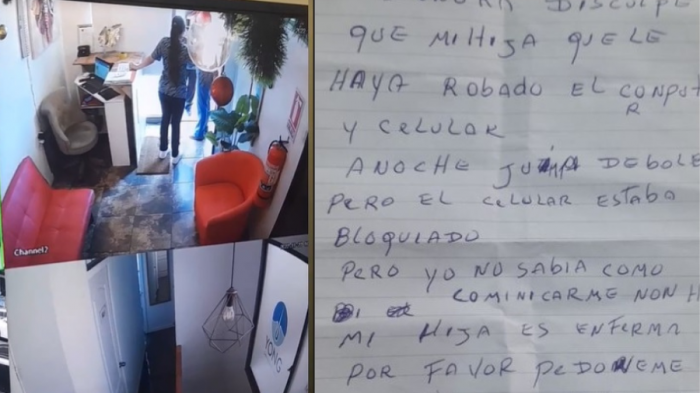 Channel2
YONG
DISCULPE
QUE MI HIJA QUE LE
HAYA ROBADO EL COMPUT
R
Y CELULAR
ANOCHE DEBOLE
PERO EL CELULAR ESTABA
BLOQUIADO
PERO YO NO SABIA COMO
COMINICARME NON H
MI HIJA ES ENFERMA
POR FAVOR PEDONEME